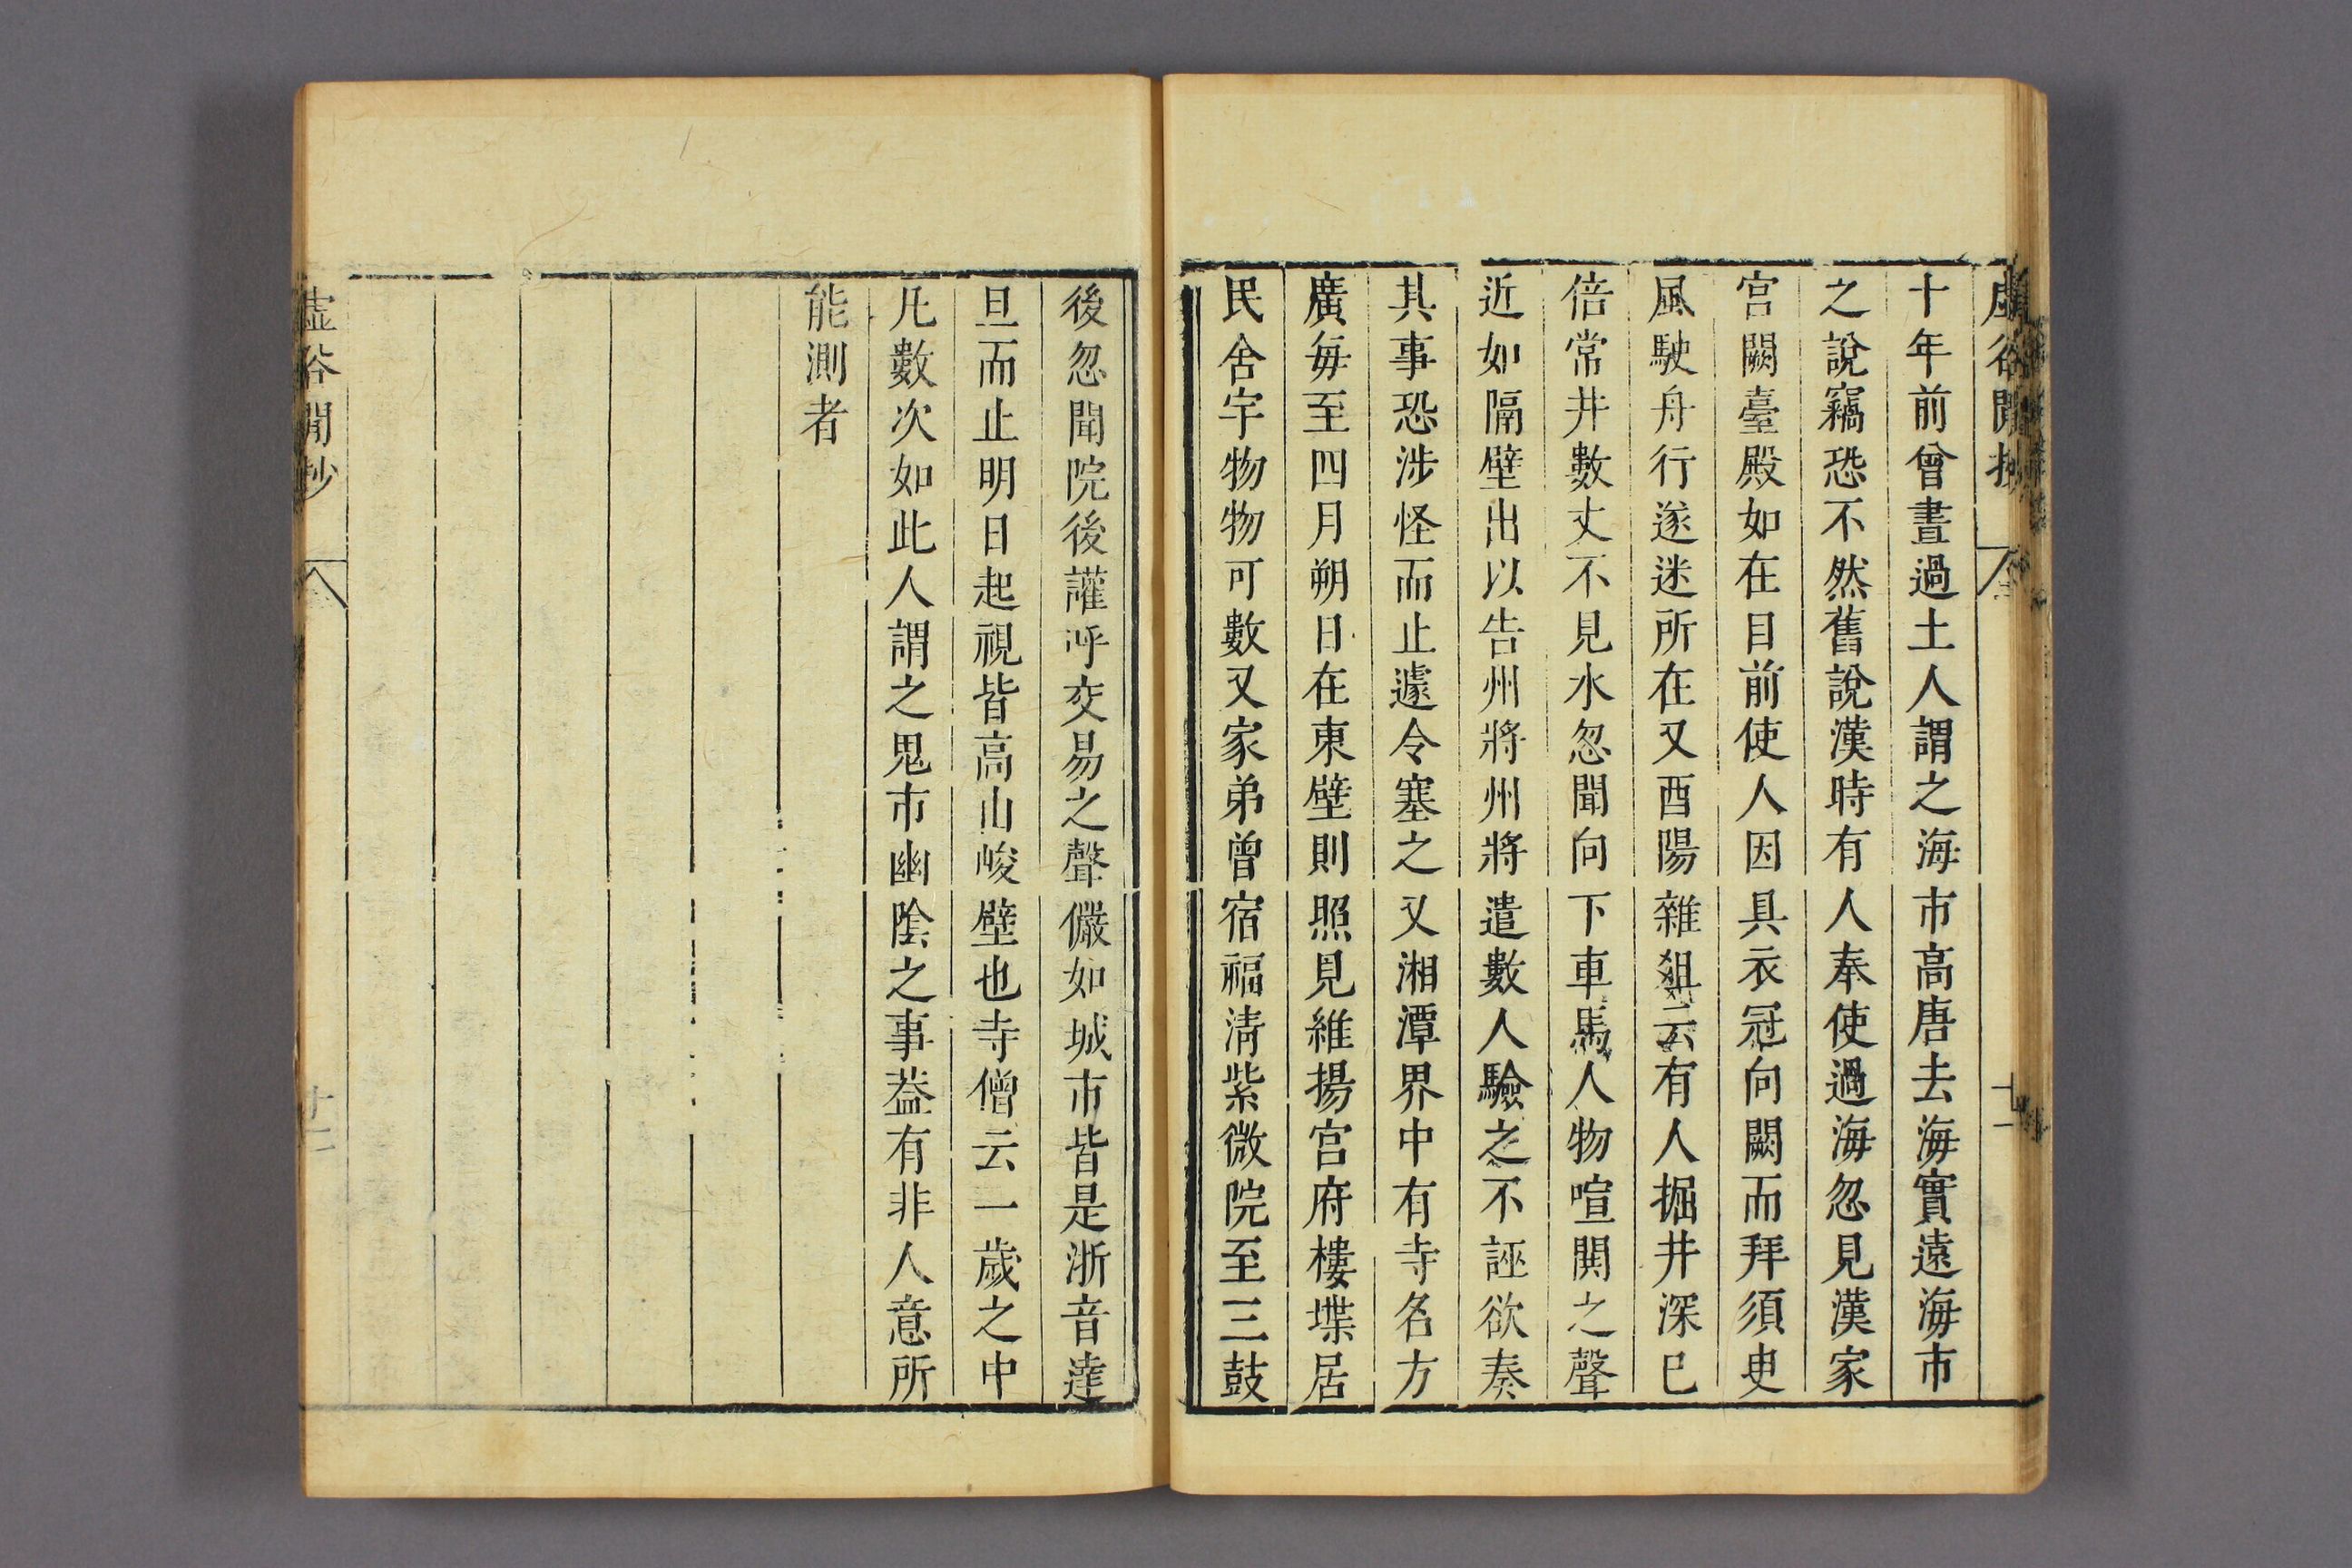 虛谷閒抄 十一
十年前曾晝過土人謂之海市高唐去海實遠海市
之說竊恐不然舊說漢時有人奉使過海忽見漢家
宮闕臺殿如在目前使人因具衣冠向闕而拜須臾
風駛舟行遂迷所在又酉陽雜俎云有人掘井深已
倍常井數丈不見水忽聞向下車馬人物喧鬨之聲
近如隔壁出以告州將州將遣數人驗之不誣欲奏
其事恐涉怪而止遽令塞之又湘潭界中有寺名方
廣每至四月朔日在東壁則照見維揚宮府樓堞居
民舍宇物物可數又家弟曾宿福清紫微院至三鼓
後忽聞院後讙呼交易之聲儼如城市皆是浙音達
旦而止明日起視皆高山峻壁也寺僧云一歲之中
凡數次如此人謂之鬼市幽陰之事葢有非人意所
能測者
虛谷閒抄 十二